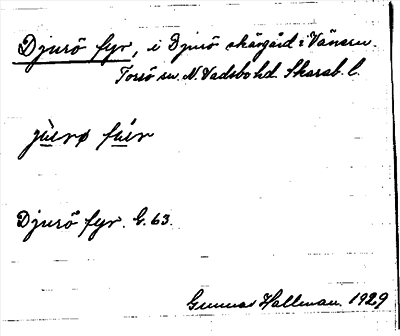 Djurö fyr, i Djurö skärgård i Vänern.
Torsö sn. N. Vadsbo hd. Skarab. l.
Djurö fyr. G. 63.
Gunnar Hallman. 1929